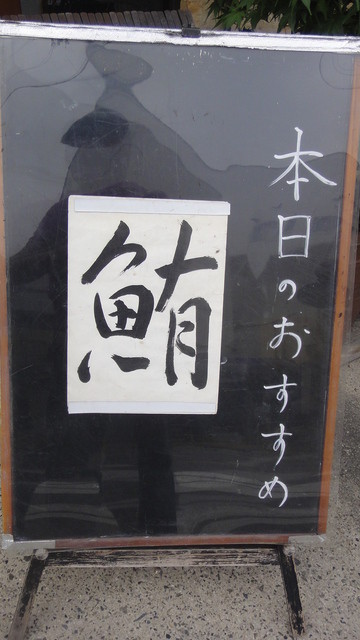 本日のおすすめ
鮪